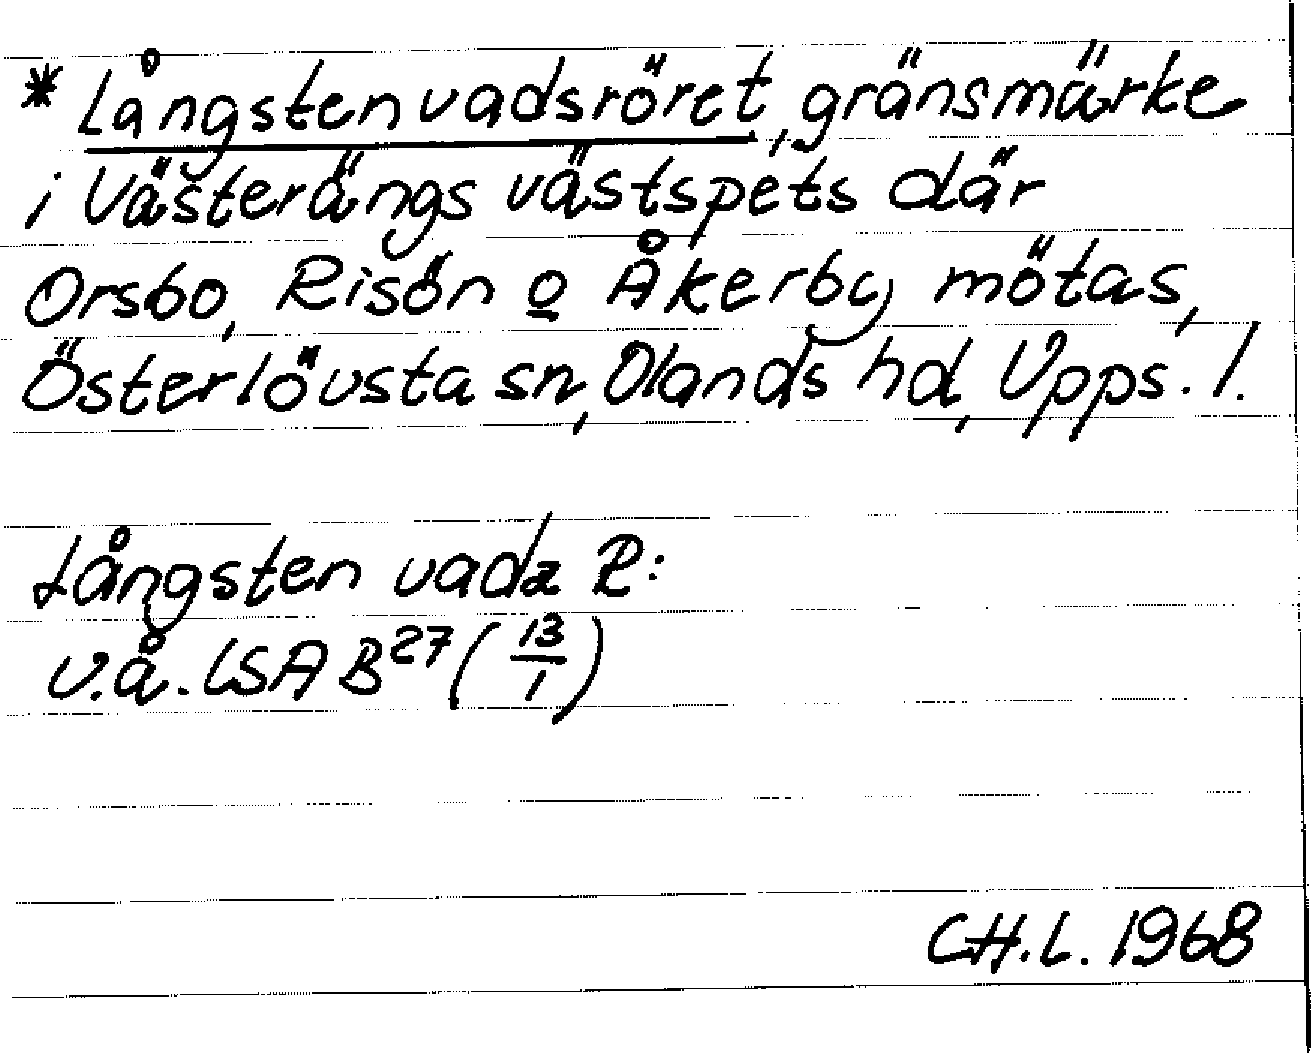 * Långstenvadsröret, gränsmärke
i Västerängs västspets där
Orsbo, Risön o Åkerby mötas,
Österlövsta sn, Olands hd, Upps. l.
Långsten vadz R:
v.å. LSA B27 (13/1)
C.H.L. 1968